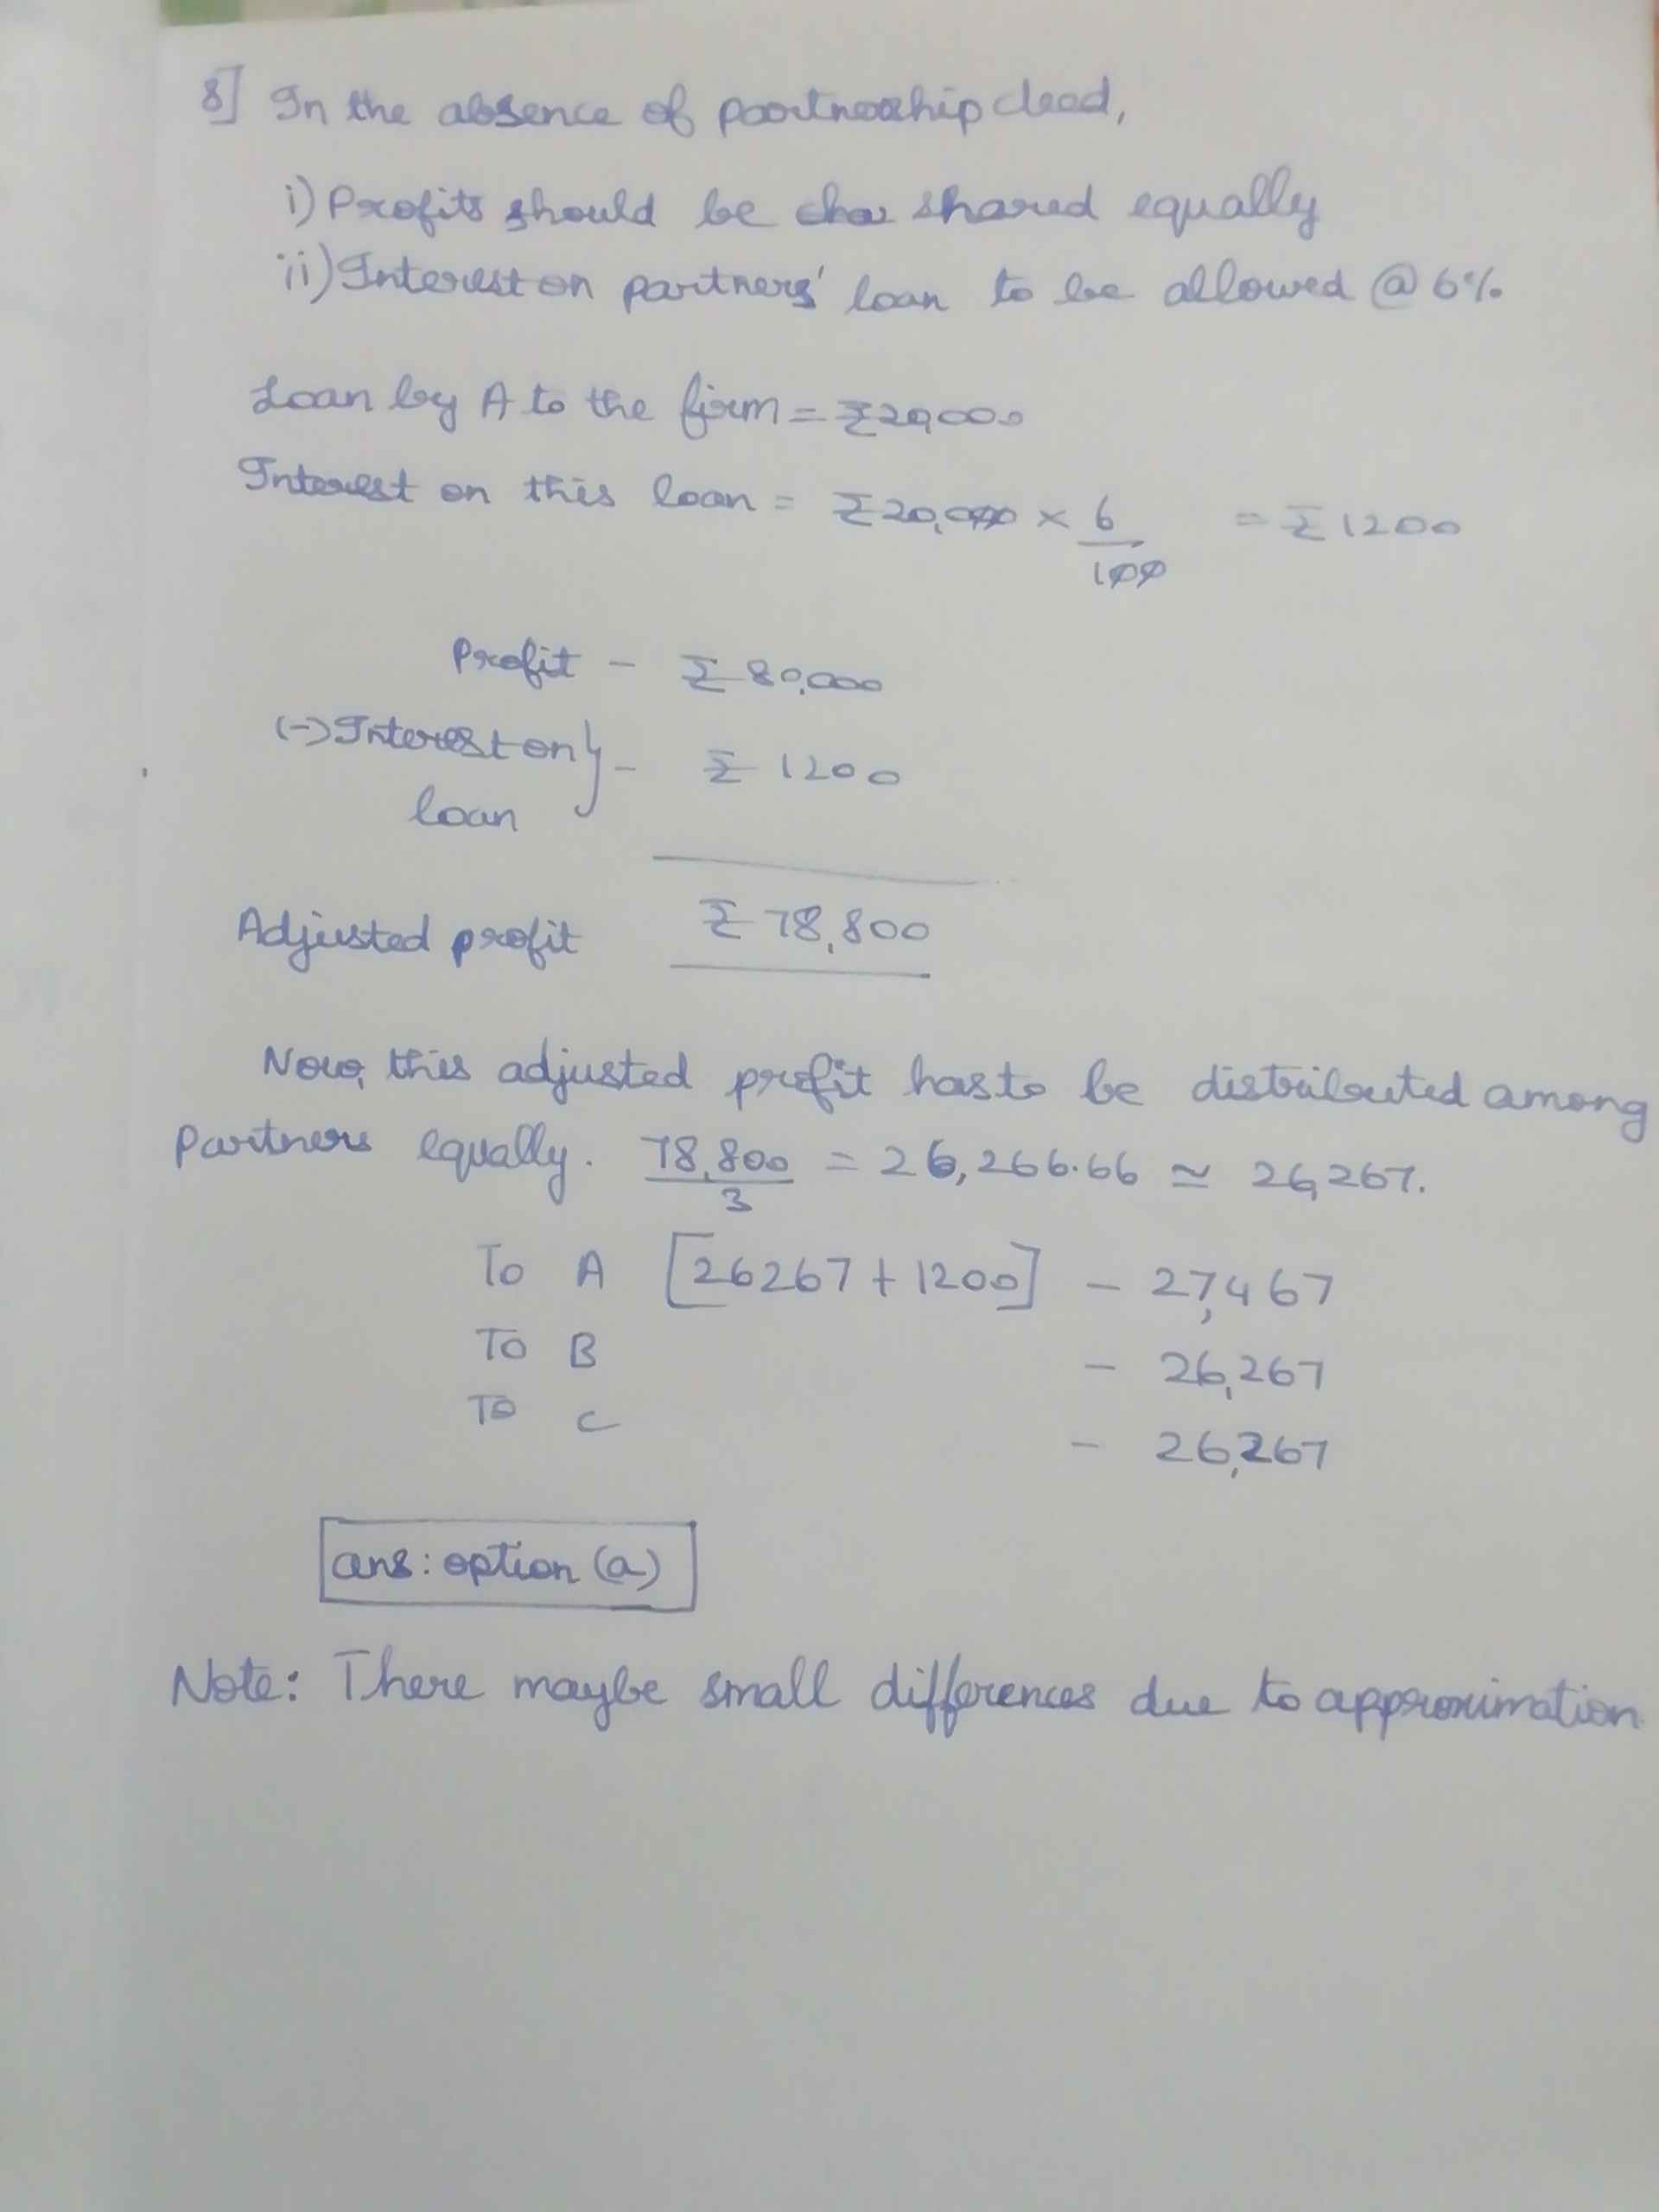 8] In the absence of partnership deed,
i) Profits should be shared equally
ii) Interest on partners' loan to be allowed @ 6%
Loan by A to the firm = ₹20,000
Interest on this loan = ₹20,000 × 6/100 = ₹1200
Profit - ₹80,000
(-) Interest on loan} - ₹1200
Adjusted profit ₹78,800
Now, this adjusted profit has to be distributed among
Partners equally. 78,800/3 = 26,266.66 ≃ 26,267.
To A [26267 + 1200] - 27,467
To B - 26,267
To C - 26,267
ans: option (a)
Note: There maybe small differences due to approximation